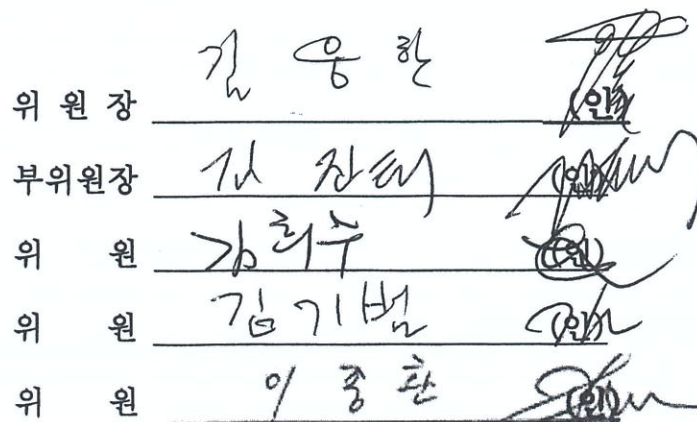 위 원 장 김 웅 한 (인)
부위원장 김 찬 (인)
위 원 김희수 (인)
위 원 김기범 (인)
위 원 이 중 환 (인)